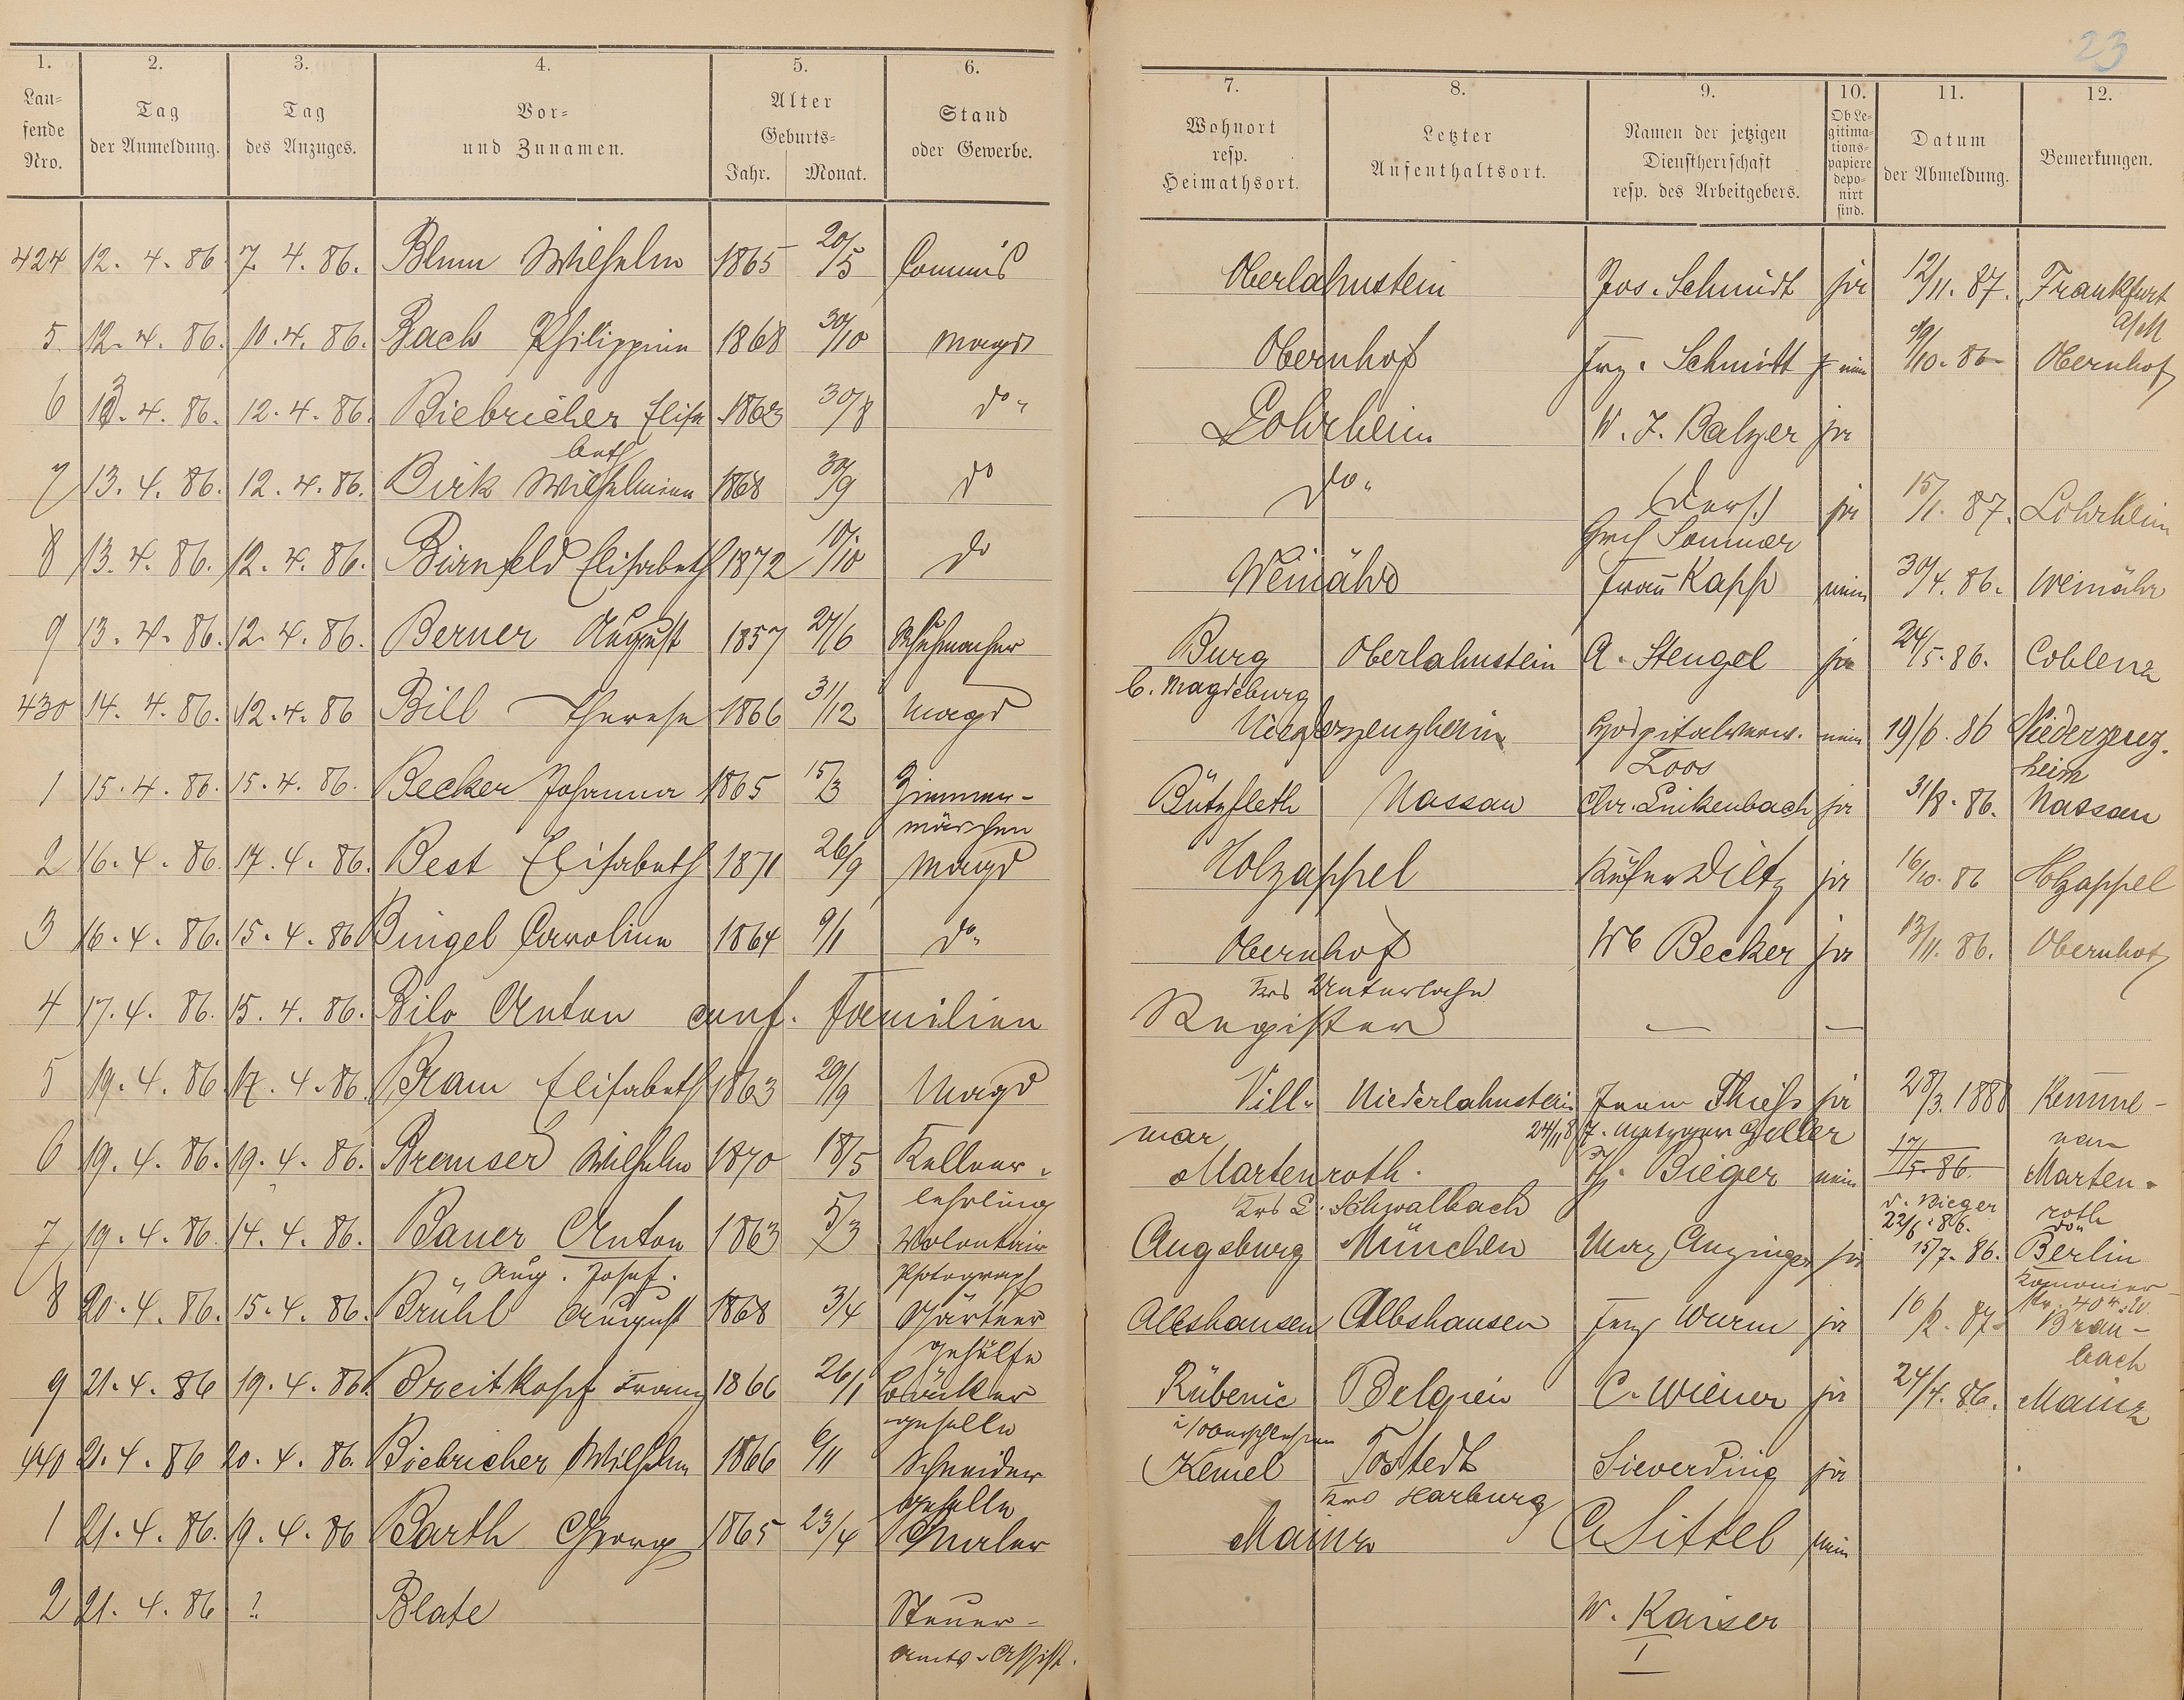 23
1. 2. 3. 4. 5. 6. 7. 8. 9. 10. 11. 12.
Lau=
fende
Nro.
Tag
der Anmeldung.
Tag
des Anzuges.
Vor=
und Zunamen.
Alter
Geburts=
Jahr. Monat.
Stand
oder Gewerbe.
Wohnort
resp.
Heimathsort.
Letzter
Aufenthaltsort.
Namen der jetzigen
Dienstherrschaft
resp. des Arbeitgebers.
Ob Le-
gitima-
tions-
papiere
depo-
nirt
sind.
Datum
der Abmeldung.
Bemerkungen.
424 12. 4. 86 7. 4. 86. Blum Wilhelm 1865 20/5 Commis Oberlahnstein Jos. Schmidt ja 12/11. 87. Frankfurt
a/M
5 12. 4. 86. 10. 4. 86. Bach Philippine 1868 30/10 Magd Obernhof Frz. Schmitt nein /10. 86 Obernhof
6 13. 4. 86. 12. 4. 86. Biebricher Elisa 1863 30/8 do. Lohrheim W. J. Balzer ja
beth
7 13. 4. 86. 12. 4. 86. Birk Wilhelmine 1868 30/9 do do. (Ders.) ja 15/1. 87. Lohrheim
8 13. 4. 86. 12. 4. 86. Birnfeld Elisabeth 1872 10/10 do Weinähr Frau Kapp nein 30/4. 86. Weinähr
Sommer
9 13. 4. 86. 12. 4. 86. Berner August 1857 27/6 Schuhmacher Burg Oberlahnstein A. Stengel ja 24/5. 86. Coblenz
b. Magdeburg
430 14. 4. 86. 12. 4. 86 Bill Therese 1866 31/12 Magd Niederzeuzheim Hospitalverw. nein 19/6. 86 Niederzeuz.
Loos heim
1 15. 4. 86. 15. 4. 86. Becker Johanna 1865 15/3 Zimmer- Bützfleth Nassau Chr. Linkenbach ja 31/8. 86. Nassau
mädchen
2 16. 4. 86. 17. 4. 86. Best Elisabeth 1871 26/9 Magd Holzappel Küfer Diltz ja 16/10. 86 Holzappel
3 16. 4. 86. 15. 4. 86 Bingel Caroline 1864 9/1 do. Obernhof Ww Becker ja 13/11. 86. Obernhof
Krs Unterlahn
4 17. 4. 86. 15. 4. 86. Bilo Anton conf. Familien Register — —
5 19. 4. 86 17. 4. 86. Bram Elisabeth 1863 29/9 Magd Vill- Niederlahnstein Thieß ja 28/3. 1888 Kemme-
mar 24/11 87. Metzger Geller nau
6 19. 4. 86. 19. 4. 86. Bremser Wilhelm 1870 18/5 Kellner- Martenroth. Ph. Bieger nein 17/5. 86. Marten-
lehrling Krs L. Schwalbach v. Bieger roth
22/6. 86. do.
7 19. 4. 86 14. 4. 86. Bauer Anton 1863 5/3 Volontair Augsburg München Anzinger ja 15/7. 86. Berlin
Aug. Josef. Photograph
8 20. 4. 86. 15. 4. 86. Brühl August 1868 3/4 Gärtner Albshausen Albshausen Wurm ja 16/2. 87 Brau-
gehülfe bach
9 21. 4. 86 19. 4. 86. Breitkopf Franz 1866 26/1 Bäcker Rübenic Belgien C. Wiener ja 24/4. 86. Mainz
geselle i/Oberschlesien
440 21. 4. 86 20. 4. 86. Biebricher Wilhelm 1866 6/11 Schneider Kemel Tostedt Sieverding ja
geselle Krs Harburg
1 21. 4. 86. 19. 4. 86 Barth Georg 1865 23/4 Maler Mainz C. Sittel nein
2 21. 4. 86 ? Blate Steuer- W. Kaiser
amts-Assist. I